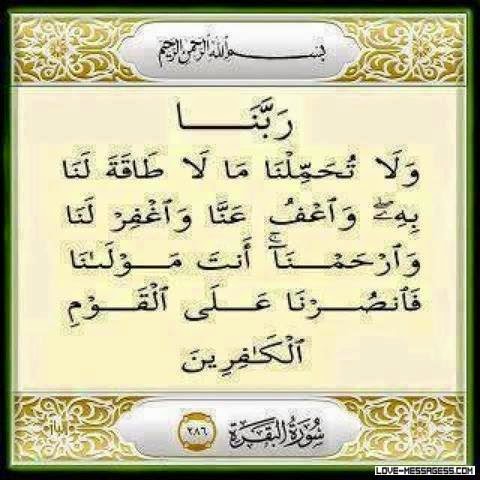 بسم الله الرحمن الرحيم
رَبَّنَــا
وَلَا تُحَمِّلْنَا مَا لَا طَاقَةَ لَنَا
بِهِۦۖ وَٱعْفُ عَنَّا وَٱغْفِرْ لَنَا
وَٱرْحَمْنَآۚ أَنتَ مَوْلَىٰنَا
فَٱنصُرْنَا عَلَى ٱلْقَوْمِ
ٱلْكَـٰفِرِينَ
سُورَةُ البَقَرَة ٢٨٦
LOVE-MESSAGESS.COM